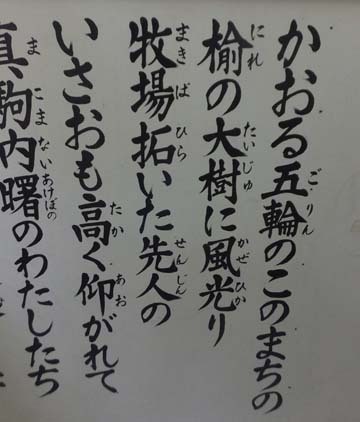 かおる五輪のこのまちの
楡の大樹に風光り
牧場拓いた先人の
いさおも高く仰がれて
真駒内曙のわたしたち